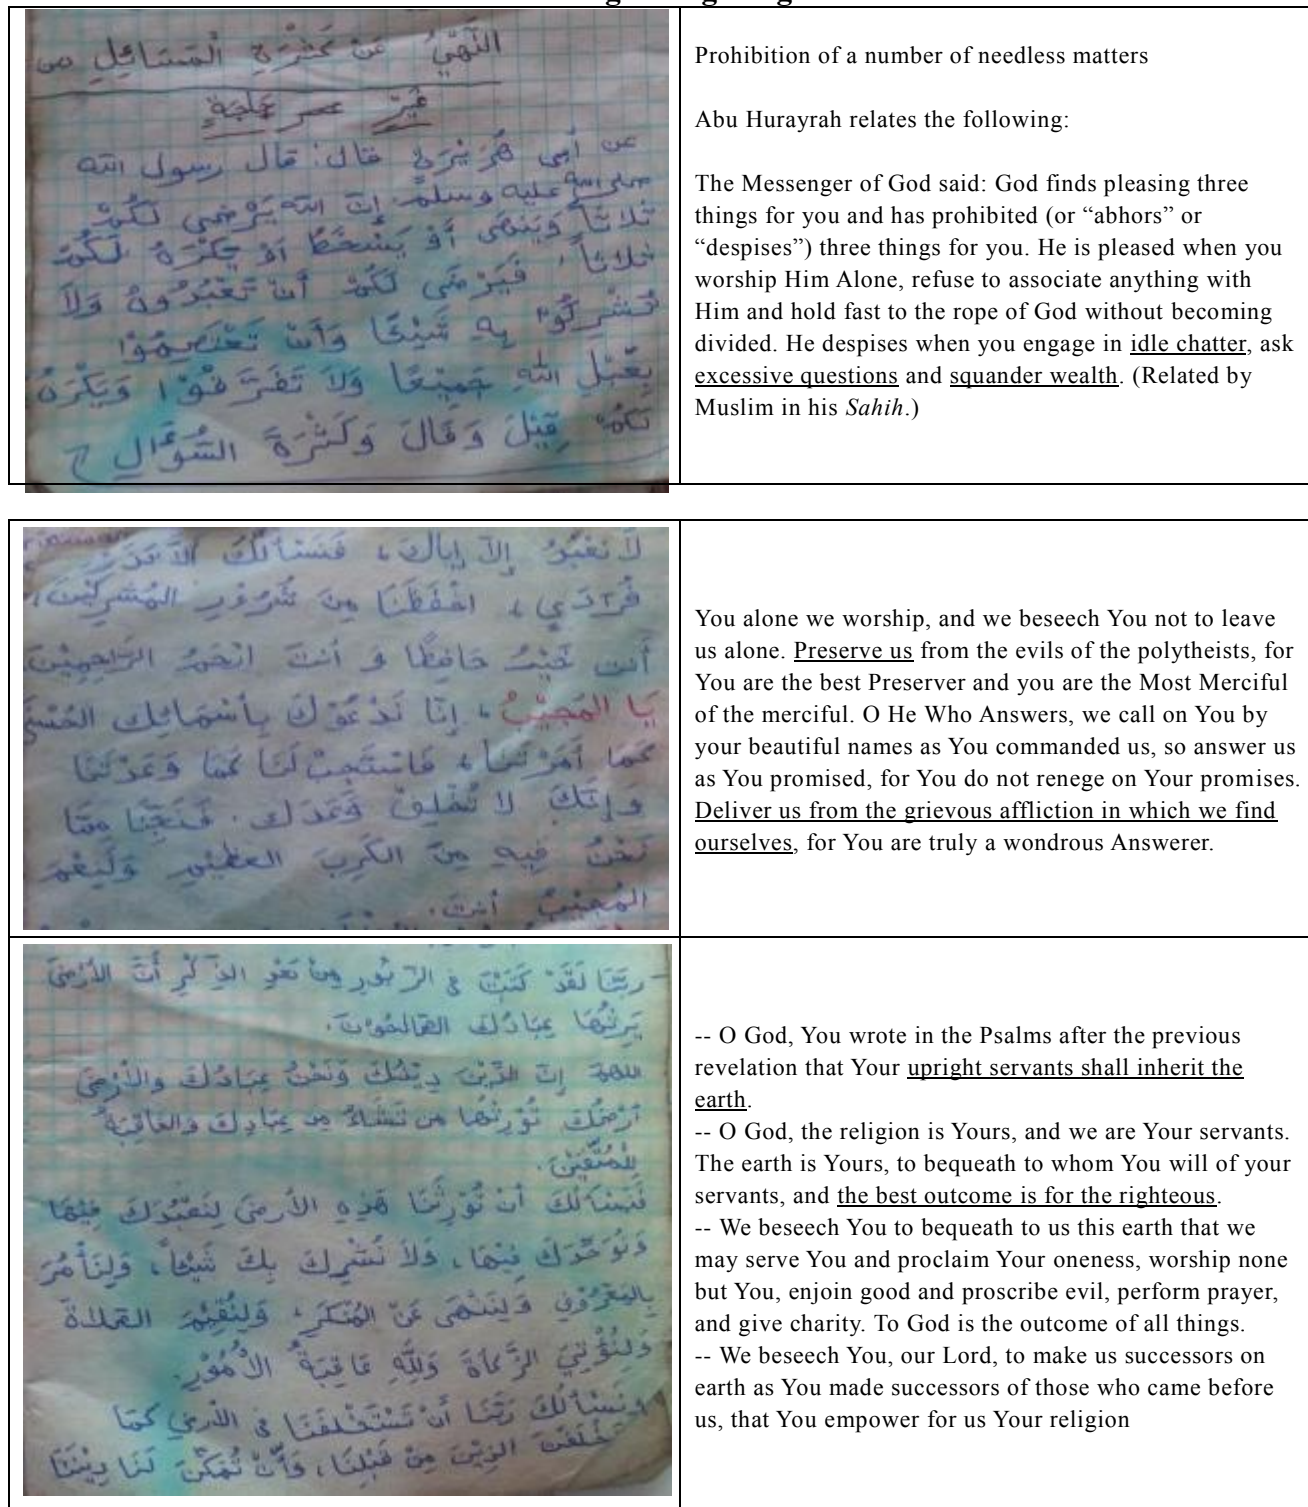 النَّهْيُ عَنْ كَثْرَةِ الْمَسَائِلِ من
غَيْرِ حَاجَةٍ
عن أبي هُرَيْرَة قال: قال رسول الله
صلى الله عليه وسلم إنّ الله يَرْضَى لَكُمْ
ثَلاثاً وَيَنْهَى أَوْ يَسْخَطُ أَوْ يَكْرَهُ لَكُمْ
ثلاثاً، فَيَرْضَى لَكُمْ أَنْ تَعْبُدُوهُ وَلَا
تُشْرِكُوا بِهِ شَيْئًا وَأَنْ تَعْتَصِمُوْا
بِحَبْلِ الله جَمِيْعًا وَلاَ تَفَرَّقُوْا وَيَكْرَهُ
لَكُمْ قِيْلَ وَقَالَ وَكَثْرَةَ السُّؤَالِ
Prohibition of a number of needless matters
Abu Hurayrah relates the following:
The Messenger of God said: God finds pleasing three
things for you and has prohibited (or “abhors” or
“despises”) three things for you. He is pleased when you
worship Him Alone, refuse to associate anything with
Him and hold fast to the rope of God without becoming
divided. He despises when you engage in idle chatter, ask
excessive questions and squander wealth. (Related by
Muslim in his Sahih.)
لَا نَعْبُدُ إِلاّ إِيَاكَ، فَنَسْأَلُكَ
فُرَادَى، احْفَظْنَا مِنْ شُرُوْرِ المُشْرِكِيْنَ،
أنت خَيْرُ حَافِظًا وَ أَنْتَ ارْحَمُ الرَّاحِمِيْنَ
يَا المُجِيْبُ، إِنَّا نَدْعُوْكَ بِأَسْمَائِكَ الحُسْنَى
كَمَا أَمَرْتَنَا، فَاسْتَجِبْ لَنَا كَمَا وَعَدْتَنَا
وَإِنَّكَ لا تُخْلِفُ وَعْدَكَ. فَنَجِّنَا مِمَّا
نَحْنُ فِيهِ مِنَ الكَرْبِ العظِيْمِ وَلَنِعْمَ
المُجِيْبُ أَنتَ.
You alone we worship, and we beseech You not to leave
us alone. Preserve us from the evils of the polytheists, for
You are the best Preserver and you are the Most Merciful
of the merciful. O He Who Answers, we call on You by
your beautiful names as You commanded us, so answer us
as You promised, for You do not renege on Your promises.
Deliver us from the grievous affliction in which we find
ourselves, for You are truly a wondrous Answerer.
- ربَّنَا لَقَدْ كَتَبْتَ فِي الزَّبُورِ مِنْ بَعْدِ الذِّكْرِ أَنَّ الأَرْضَ
يَرِثُهَا عِبَادُكَ الصَّالِحُوْنَ.
اللهمّ إِنَّ الدِّيْنَ دِيْنُكَ وَنَحْنُ عِبَادُكَ وَالأَرْضَ
أرْضُكَ تُوْرِثُهَا مَن تَشَاءُ مِن عِبَادِكَ وَالعَاقِبَةُ
لِلْمُتَّقِيْنَ.
فَنَسْأَلُكَ أَنْ تُوْرِثَنَا هَذِهِ الأَرضَ لِنَعْبُدَكَ فِيْهَا
وَنُوَحِّدَكَ فِيْهَا، وَلَا نُشْرِكَ بِكَ شَيْئاً، وَلِنَأْمُرَ
بِالمَعْرُوْفِ وَلِنَنْهَى عَنْ المُنْكَرِ، وَلِنُقِيْمَ الصَّلَاةَ
وَلِنُؤْتِيَ الزَّكَاةَ وَلِلَّهِ عَاقِبَةُ الأُمُوْرِ.
وَنَسْأَلُكَ رَبَّنَا أَنْ تَسْتَخْلِفَنَا فِي الأَرْضِ كَمَا
الذِيْنَ مِنْ قَبْلِنَا، وَأَنْ تُمَكِّنَ لَنَا دِيْنَنَا
-- O God, You wrote in the Psalms after the previous
revelation that Your upright servants shall inherit the
earth.
-- O God, the religion is Yours, and we are Your servants.
The earth is Yours, to bequeath to whom You will of your
servants, and the best outcome is for the righteous.
-- We beseech You to bequeath to us this earth that we
may serve You and proclaim Your oneness, worship none
but You, enjoin good and proscribe evil, perform prayer,
and give charity. To God is the outcome of all things.
-- We beseech You, our Lord, to make us successors on
earth as You made successors of those who came before
us, that You empower for us Your religion